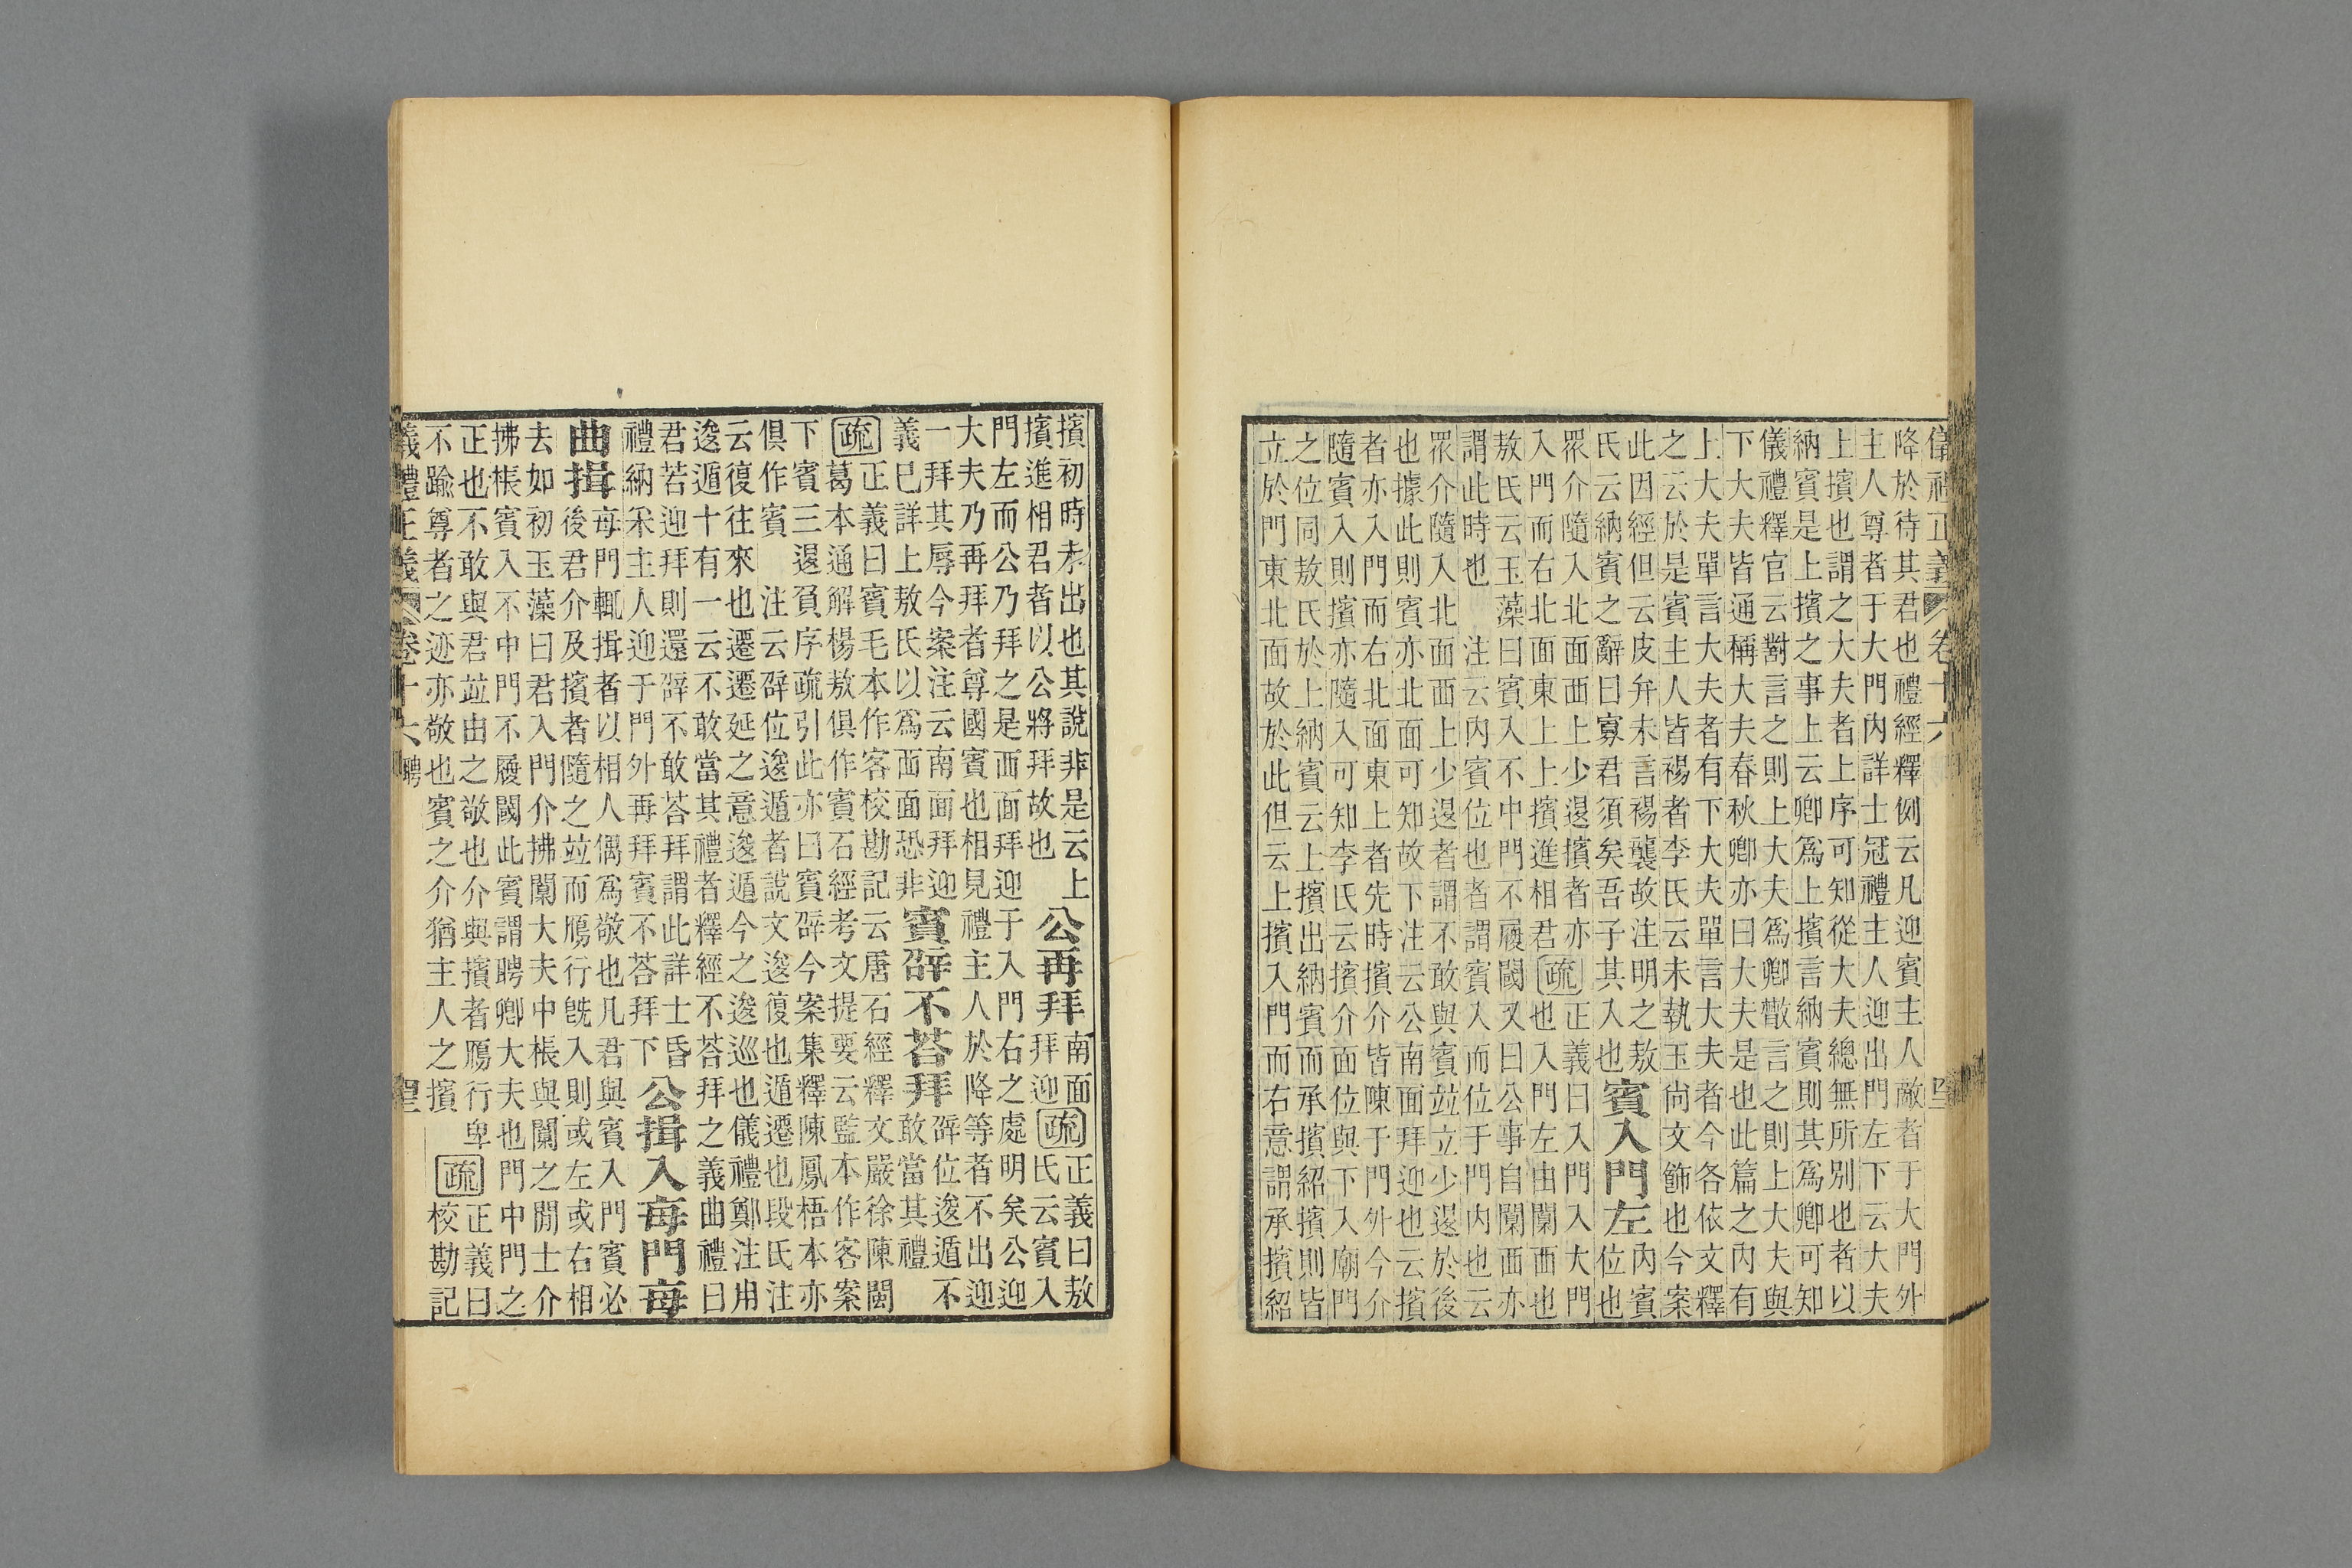 儀禮正義 卷十六
降於待其君也禮經釋例云凡迎賓主人敵者于大門外
主人尊者于大門內詳士冠禮主人迎出門左下云大夫
上擯也謂之大夫者上序可知從大夫總無所別也者以
納賓是上擯之事上云卿爲上擯言納賓則其爲卿可知
儀禮釋官云對言之則上大夫爲卿散言之則上大夫與
下大夫皆通稱大夫春秋卿亦曰大夫是也此篇之內有
上大夫單言大夫者有下大夫單言大夫者今各依文釋
之云於是賓主人皆裼者李氏云未執玉尙文飾也今案
此因經但云皮弁未言裼襲故注明之敖
氏云納賓之辭曰寡君須矣吾子其入也
賓入門左
內賓
位也
眾介隨入北面西上少退擯者亦
入門而右北面東上上擯進相君
疏
正義曰入門入大門
也入門左由闑西也
敖氏云玉藻曰賓入不中門不履閾又曰公事自闑西亦
謂此時也 注云內賓位也者謂賓入而位于門內也云
眾介隨入北面西上少退者謂不敢與賓竝立少退於後
也據此則賓亦北面可知故下注云公南面拜迎也云擯
者亦入門而右北面東上者先時擯介皆陳于門外今介
隨賓入則擯亦隨入可知李氏云擯介面位與下入廟門
之位同敖氏於上納賓云上擯出納賓而承擯紹擯則皆
立於門東北面故於此但云上擯入門而右意謂承擯紹
擯初時未出也其說非是云上
擯進相君者以公將拜故也
公再拜
南面
拜迎
疏
正義曰敖
氏云賓入
門左而公乃拜之是面面拜迎于入門右之處明矣公迎
大夫乃再拜者尊國賓也相見禮主人於降等者不出迎
一拜其辱今案注云南面拜迎
義已詳上敖氏以爲西面恐非
賓辟不荅拜
辟位逡遁不
敢當其禮
疏
正義曰賓毛本作客校勘記云唐石經釋文嚴徐陳閩
葛本通解楊敖俱作賓石經考文提要云監本作客案
下賓三退負序疏引此亦曰賓辟今案集釋陳鳳梧本亦
俱作賓 注云辟位逡遁者說文逡復也遁遷也段氏注
云復往來也遷遷延之意逡遁今之逡巡也儀禮鄭注用
逡遁十有一云不敢當其禮者釋經不荅拜之義曲禮曰
君若迎拜則還辟不敢荅拜謂此詳士昏
禮納采主人迎于門外再拜賓不荅拜下
公揖入每門每
曲揖
每門輒揖者以相人偶爲敬也凡君與賓入門賓必
後君介及擯者隨之竝而鴈行旣入則或左或右相
去如初玉藻曰君入門介拂闑大夫中棖與闑之閒士介
拂棖賓入不中門不履閾此賓謂聘卿大夫也門中門之
正也不敢與君竝由之敬也介與擯者鴈行卑
不踰尊者之迹亦敬也賓之介猶主人之擯
疏
正義曰
校勘記
義禮正義 卷十六 聘